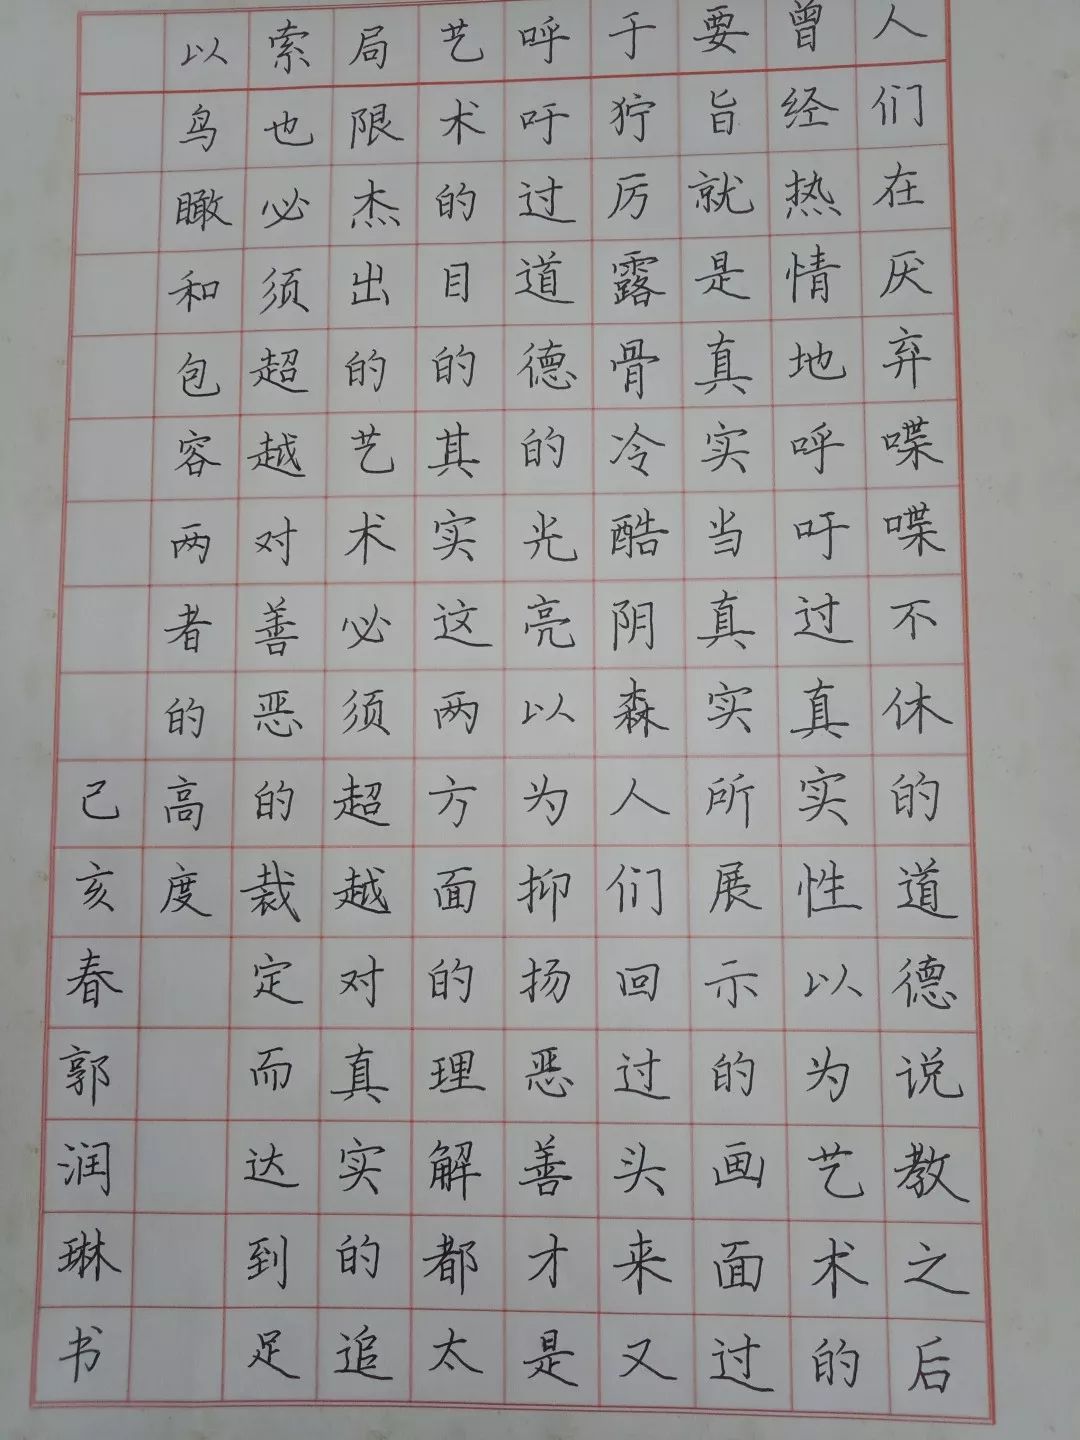 人们在厌弃喋喋不休的道德说教之后
曾经热情地呼吁过真实性以为艺术的
要旨就是真实当真实所展示的画面过
于狞厉露骨冷酷阴森人们回过头来又
呼吁过道德的光亮以为抑扬恶善才是
艺术的目的其实这两方面的理解都太
局限杰出的艺术必须超越对真实的追
索也必须超越对善恶的裁定而达到足
以鸟瞰和包容两者的高度
己亥春郭润琳书